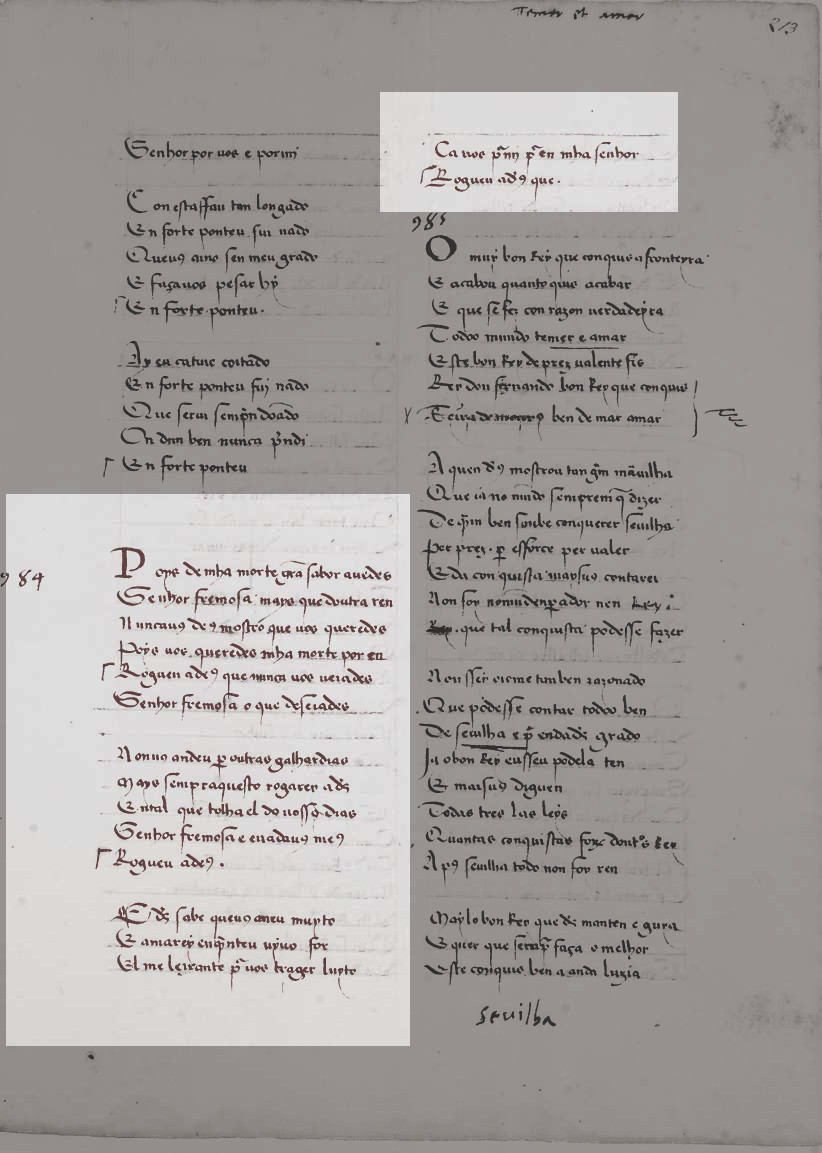 Temer et amar
213
Senhor por uos e por mi
Con estassau tan longado
En forte ponteu fui nado
Queuꝰ amo sen meu grado
E façauos pesar hy
En forte ponteu.
Ay eu catiuo coitado
En forte ponteu fuj nado
Que serui sempʼn doado
On dun ben nunca pʼndi
En forte ponteu
984
Poys de mha morte grã sabor auedes
Senhor fremosa mays que doutra ren
Nuncauꝰ deꝰ mostro que uos queredes
Poys uos queredes mha morte por en
Rogueu adeꝰ que nunca uos ueiades
Senhor fremosa o que deseiades
Nonuꝰ andeu ꝑ outras galhardias
Mays sempraquesto rogarey ad̄s
En tal que tolha el do uosso dias
Senhor fremosa e enadauꝰ meꝰ
Rogueu adeꝰ.
E ds̄ sabe queuꝰ ameu muyto
E amarey enqʼnteu uyuo for
El me leixante pʼ uos trager luyto
Ca uos pʼmj pʼ en mha senhor
Rogueu adꝰ que.
985
O muy bon Rey que conquis a fronteyra
E acabou quanto quis acabar
E que se fez con razon uerdadeyra
Todo mundo temer e amar
Este bon Rey de prez valente fis
Rey don fernando bon Rey que conquis
Terra de mouros ben de mar amar
A quen dꝰ mostrou tan grm̄ mãuilha
Que ia no mũdo sempremꝰ q̄ dizer
De qm̄n ben soube conquerer seuilha
Per prez. ꝑ esforce per ualer
E da conquista maysuꝰ contarei
Non foy nomũdenꝑador nen Rey
que tal conquista podesse fazer
Non ssey oiome tan ben razonado
Que podesse contar todoo ben
De seuilha e pʼ endads̄ grado
Ja o bon Rey eusseu podela ten
E maisuꝰ diguen
Todas tres las leys
Quantas conquistas foro dontos Rey
Apꝰ seuilha todo non foy ren
May lo bon Rey que ds̄ manten e guya
E quer que sempʼ faça o melhor
Este conquis ben a anda luzia
seuilha